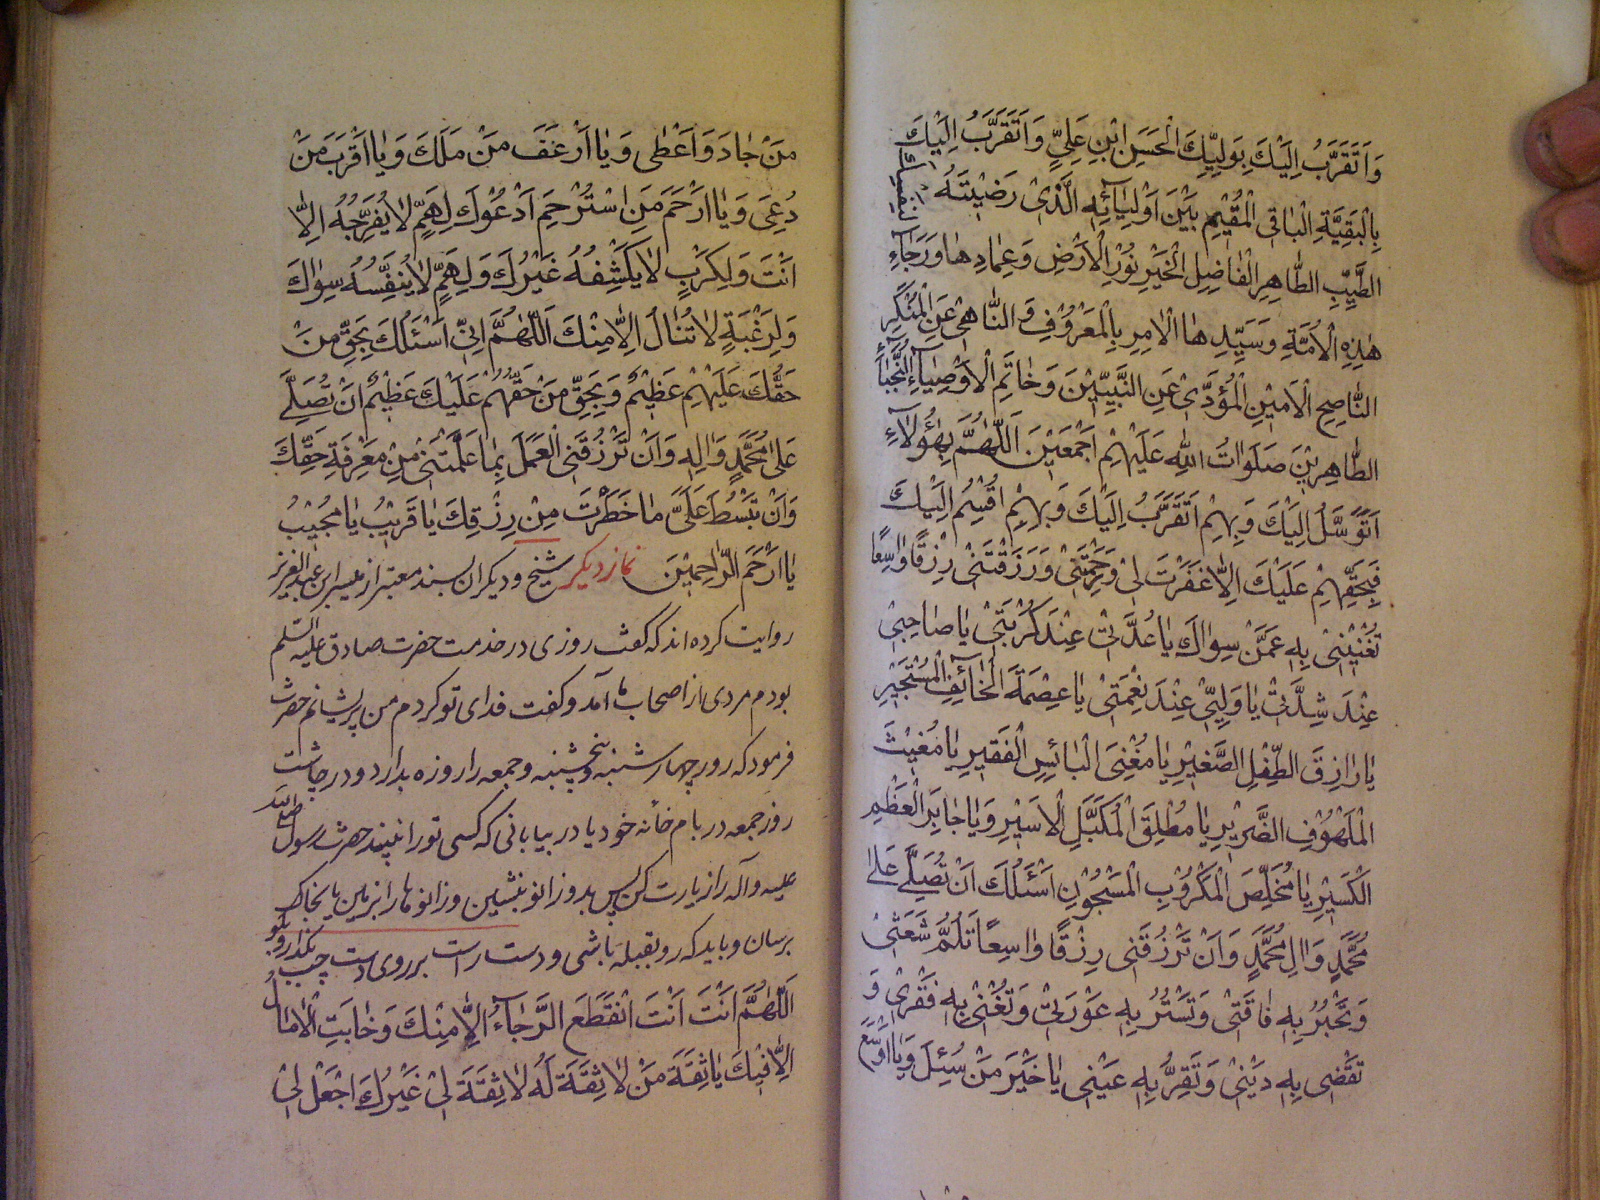 وَاَتَقَرَّبُ اِلَيْكَ بِوَلِيِّكَ الْحَسَنِ ابْنِ عَلِيٍّ وَاَتَقَرَّبُ اِلَيْكَ
بِالْبَقِيَّةِ الْبٰاقِي الْمُقيْمِ بَيْنَ اَوْلِيٰآئِهِ الَّذىْ رَضيْتَهُ لِنَفْسِكَ
الطَّيِّبِ الطّٰاهِرِ الْفٰاضِلِ الْخَيْرِ نُوْرِ الْاَرْضِ وَعِمٰادِهٰا وَرَجٰآءِ
هٰذِهِ الْاُمَّةِ وَسَيِّدِهٰا الْاٰمِرِ بِالْمَعْرُوْفِ وَ النّٰاهىْ عَنِ الْمُنْكَرِ
النّٰاصِحِ الْاَميْنِ الْمُؤَدّىْ عَنِ النَّبِيّيْنَ وَخٰاتَمِ الْاَوْصِيٰآءِ النُّجَبٰآءِ
الطّٰاهِريْنَ صَلَوٰاتُ اللّٰهِ عَلَيْهِمْ اَجْمَعيْنَ اَللّٰهُمَّ بِهٰؤُلٰآءِ
اَتَوَسَّلُ اِلَيْكَ وَبِهِمْ اَتَقَرَّبُ اِلَيْكَ وَبِهِمْ اُقْسِمُ اِلَيْكَ
فَبِحَقِّهِمْ عَلَيْكَ اِلّٰا غَفَرْتَ لىْ وَرَحِمْتَنىْ وَرَزَقْتَنىْ رِزْقًا وٰاسِعًا
تُغْنيْنىْ بِهِ عَمَّنْ سِوٰاكَ يٰا عُدَّتىْ عِنْدَ كُرْبَتىْ يٰا صٰاحِبىْ
عِنْدَ شِدَّتىْ يٰا وَلِيّىْ عِنْدَ نِعْمَتىْ يٰا عِصْمَةَ الْخٰآئِفِ الْمُسْتَجيْرِ
يٰا رٰازِقَ الطِّفْلِ الصَّغيْرِ يٰا مُغْنِىَ الْبٰائِسِ الْفَقيْرِ يٰا مُغيْثَ
الْمَلْهُوْفِ الضَّريْرِ يٰا مُطْلِقَ الْمُكَبَّلِ الْاَسيْرِ وَيٰا جٰابِرَ الْعَظْمِ
الْكَسيْرِ يٰا مُخَلِّصَ الْمَكْرُوْبِ الْمَسْجُوْنِ اَسْئَلُكَ اَنْ تُصَلِّىَ عَلٰى
مُحَمَّدٍ وَاٰلِ مُحَمَّدٍ وَاَنْ تَرْزُقَنى رِزْقًا وٰاسِعًا تَلُمُّ شَعَثىْ
وَتَجْبُرُ بِهِ فٰاقَتىْ وَتَسْتُرُ بِهِ عَوْرَتىْ وَتُغْنىْ بِهِ فَقْرىْ وَ
تَقْضى بِهِ دَيْنىْ وَتَقِرُّ بِهِ عَيْنى يٰا خَيْرَ مَنْ سُئِلَ وَيٰا اَوْسَعَ
مَنْ جٰادَ وَاَعْطٰى وَيٰا اَرْءَفَ مَنْ مَلَكَ وَيٰا اَقْرَبَ مَنْ
دُعِىَ وَيٰا اَرْحَمَ مَنِ اسْتُرْحِمَ اَدْعُوْكَ لِهَمٍّ لٰا يُفَرِّجُهُ اِلّٰا
اَنْتَ وَلِكَرْبٍ لٰا يَكْشِفُهُ غَيْرُكَ وَلِهَمٍّ لٰا يُنَفِّسُهُ سِوٰاكَ
وَلِرَغْبَةٍ لٰا تُنٰالُ اِلّٰا مِنْكَ اَللّٰهُمَّ اِنّى اَسْئَلُكَ بِحَقِّ مَنْ
حَقُّكَ عَلَيْهِمْ عَظيْمٌ وَبِحَقِّ مَنْ حَقُّهُمْ عَلَيْكَ عَظيْمٌ اَنْ تُصَلِّىَ
عَلٰى مُحَمَّدٍ وَاٰلِهِ وَاَنْ تَرْزُقَنى الْعَمَلَ بِمٰا عَلَّمْتَنى مِنْ مَعْرِفَةِ حَقِّكَ
وَاَنْ تَبْسُطَ عَلَىَّ مٰا حَظَرْتَ مِنْ رِزْقِكَ يٰا قَريْبُ يٰا مُجيْبُ
يٰا اَرْحَمَ الرّٰاحِميْنَ نماز ديكر شيخ و ديكران بسند معتبر از ميسر ابن عبد العزيز
روايت كرده اند كه كفت روزى در خدمت حضرت صادق عليه السلم
بودم مردى از اصحاب ما آمد و كفت فداى تو كردم من پريشانم حضرت
فرمود كه روز چهارشنبه و پنجشنبه و جمعه را روزه بدارد و در چاشت
روز جمعه در بام خانه خود يا در بيابانى كه كسى تو را نبيند حضرت رسول صلى الله
عليه و آله را زيارت كن پس بدو زانو بنشين و زانوها را بزمين يا بخاك
برسان و بايد كه رو بقبله باشى و دست راست بر روى دست چپ بكذار و بكو
اَللّٰهُمَّ اَنْتَ اَنْتَ انْقَطَعَ الرَّجٰآءُ اِلّٰا مِنْكَ وَخٰابَتِ الْاٰمٰالُ
اِلّٰا فيْكَ يٰا ثِقَةَ مَنْ لٰا ثِقَةَ لَهُ لٰا ثِقَةَ لىْ غَيْرُكَ اجْعَلْ لىْ